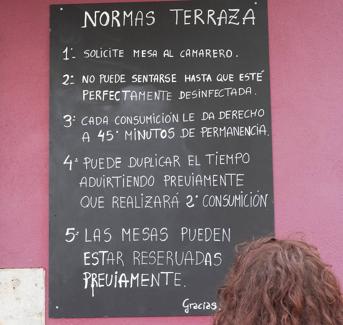 NORMAS TERRAZA
1ª- SOLICITE MESA AL CAMARERO.
2ª- NO PUEDE SENTARSE HASTA QUE ESTÉ
PERFECTAMENTE DESINFECTADA.
3ª CADA CONSUMICIÓN LE DA DERECHO
A 45' MINUTOS DE PERMANENCIA.
4ª PUEDE DUPLICAR EL TIEMPO
ADVIRTIENDO PREVIAMENTE
QUE REALIZARÁ 2ª CONSUMICIÓN
5ª LAS MESAS PUEDEN
ESTAR RESERVADAS
PREVIAMENTE.
Gracias.